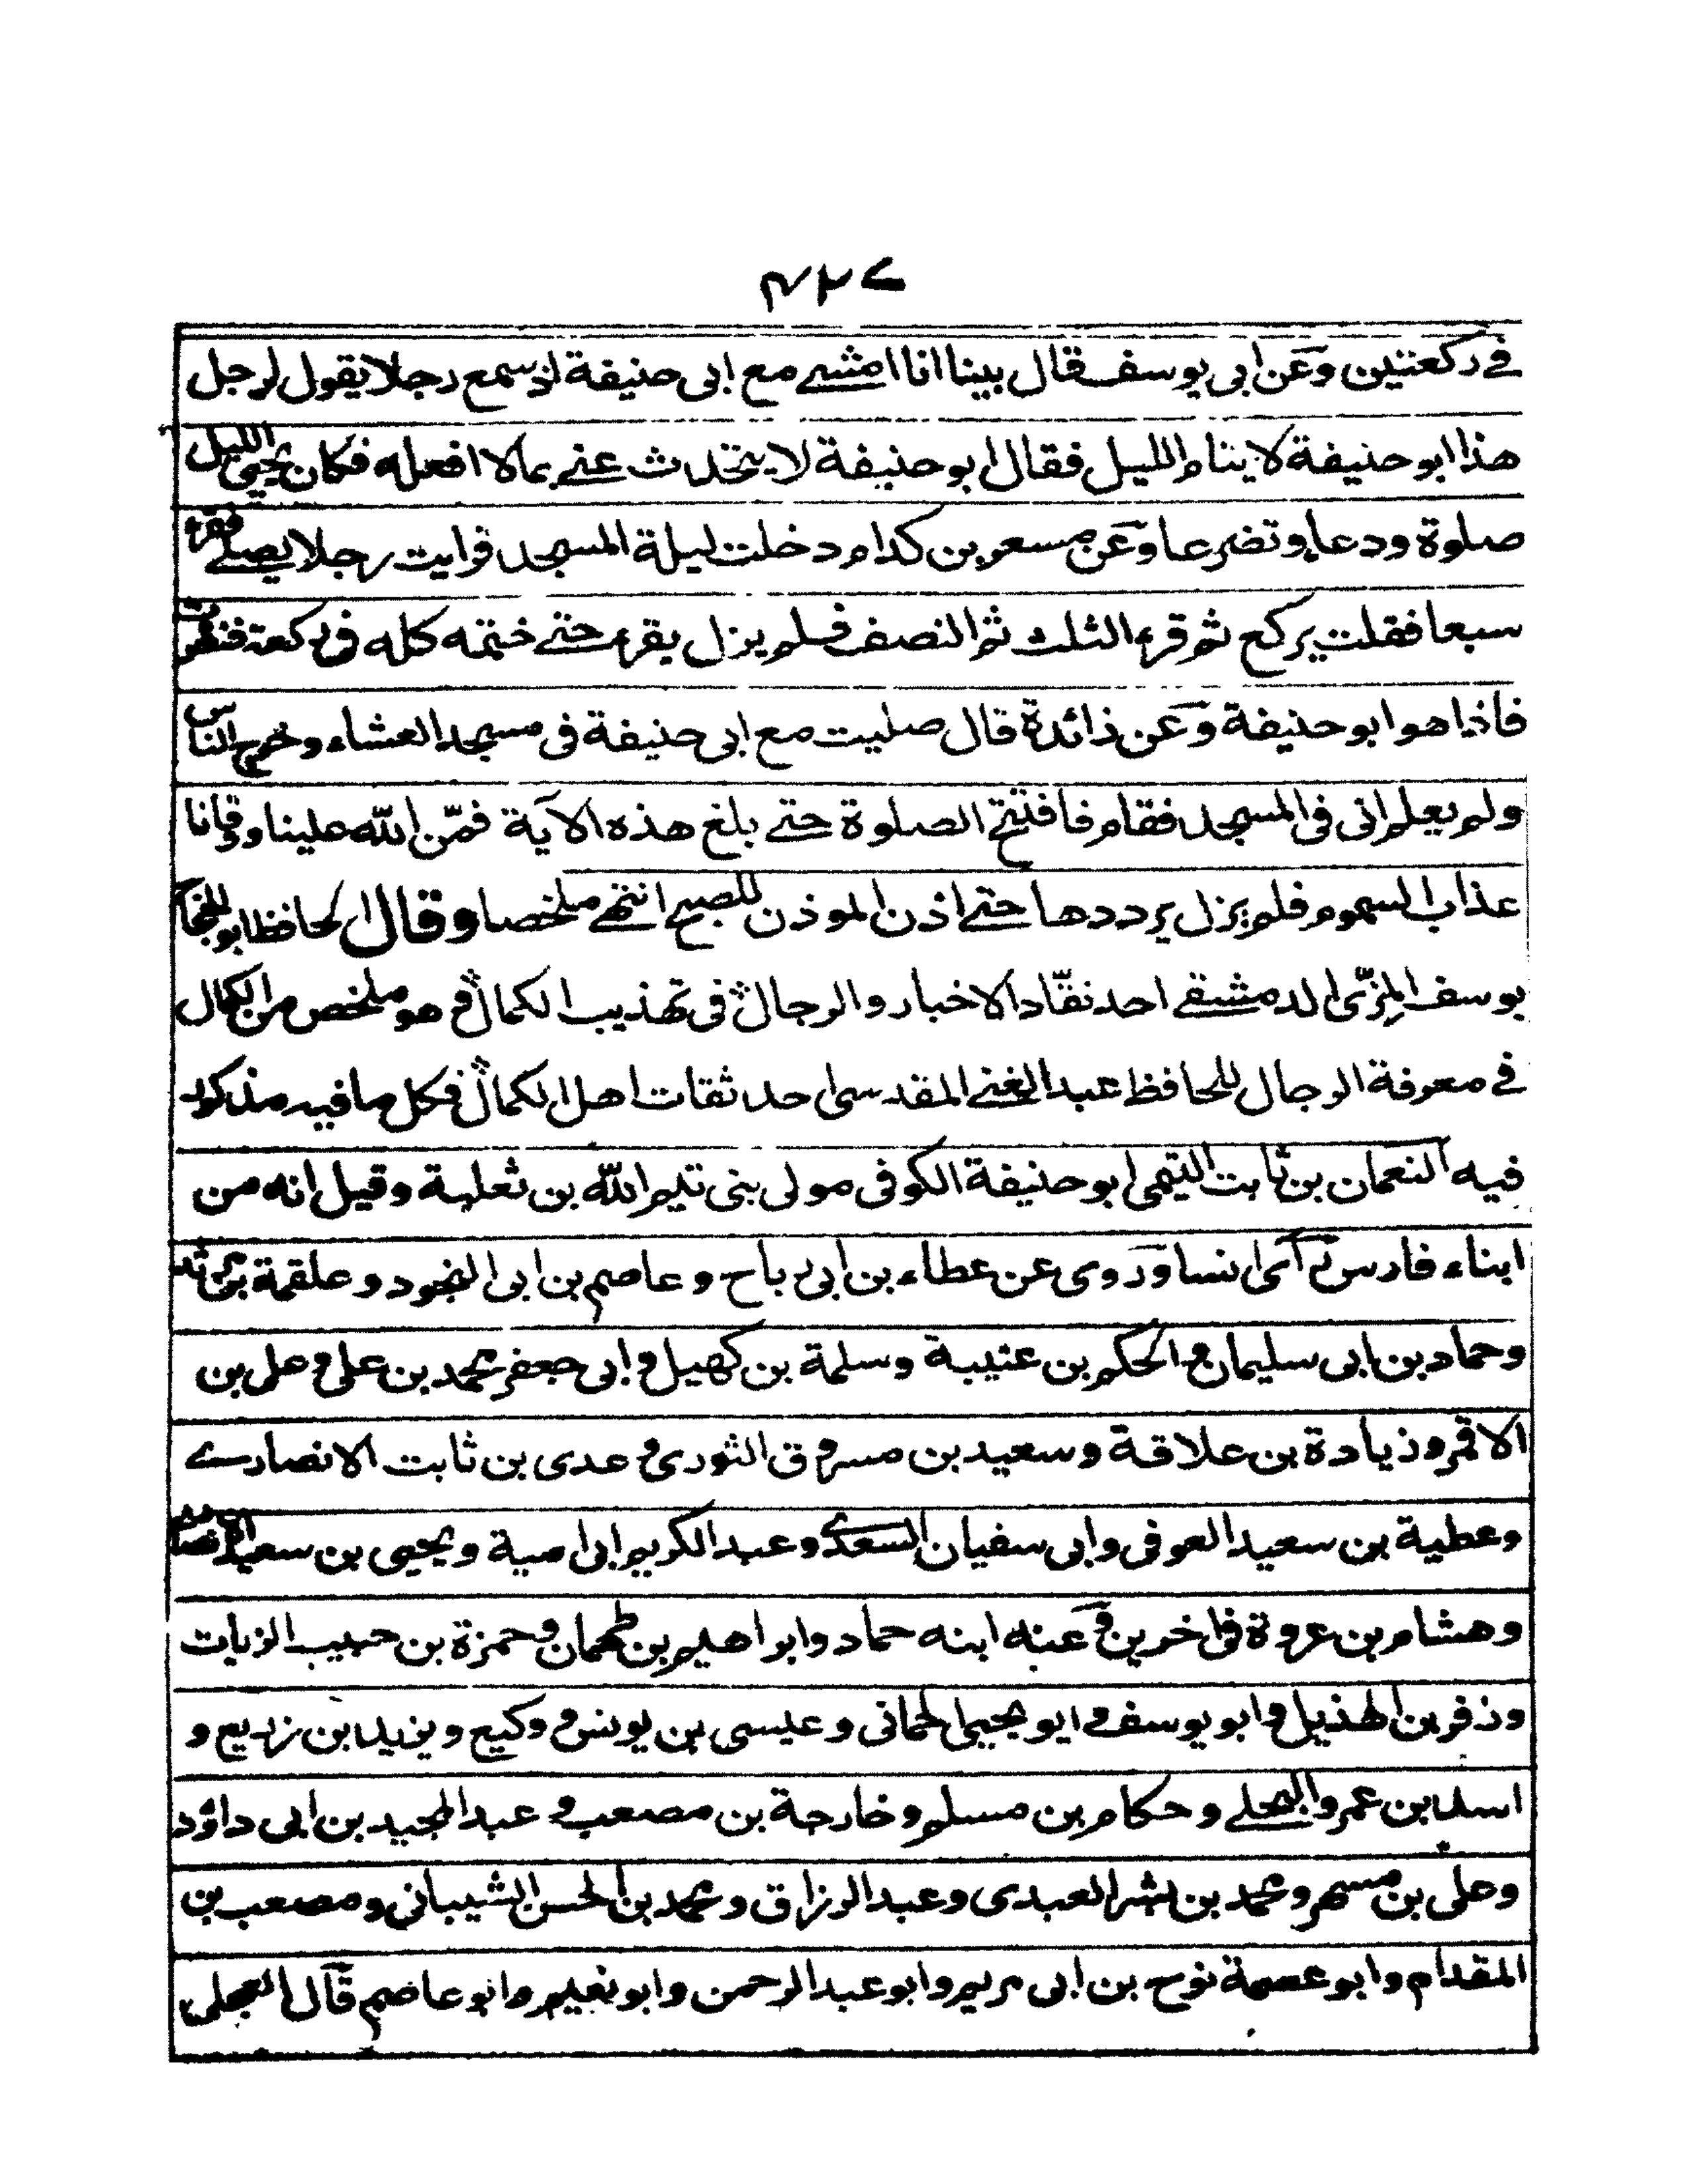 ٤٢٧
في ركعتين وعن ابي يوسف قال بينا انا امشي مع ابي حنيفة اذ سمع رجلا يقول لرجل
هذا ابو حنيفة لا ينام الليل فقال ابو حنيفة لا يتحدث عني بما لا افعله فكان يحيي الليل
صلوة ودعاء وتضرعا وعن مسعر بن كدام دخلت ليلة المسجد فرايت رجلا يصلي فقرء
سبعا فقلت يركع ثم قرء الثلث ثم النصف فلم يزل يقرء حتى ختمه كله في ركعة فنظرت
فاذا هو ابو حنيفة وعن زائدة قال صليت مع ابي حنيفة في مسجد العشاء وخرج الناس
ولم يعلم اني في المسجد فقام فافتتح الصلوة حتى بلغ هذه الآية فمنّ الله علينا ووقانا
عذاب السموم فلم يزل يرددها حتى اذن الموذن للصبح انتهى ملخصا وقال الحافظ ابو الحجاج
يوسف المِزّي الدمشقي احد نقّاد الاخبار والرجال في تهذيب الكمال وهو ملخص من الكمال
في معرفة الرجال للحافظ عبد الغني المقدسي احد ثقات اهل الكمال فكل ما فيه مذكور
فيه النعمان بن ثابت التيمي ابو حنيفة الكوفي مولى بني تيم الله بن ثعلبة وقيل انه من
ابناء فارس رآى انسا وروى عن عطاء بن ابي رباح وعاصم بن ابي النجود وعلقمة بن مرثد
وحماد بن ابي سليمان والحكم بن عتيبة وسلمة بن كهيل وابي جعفر محمد بن علي وعلي بن
الاقمر وزيادة بن علاقة وسعيد بن مسروق الثوري وعدي بن ثابت الانصاري
وعطية بن سعيد العوفي وابي سفيان السعدي وعبد الكريم ابي امية ويحيى بن سعيد الانصاري
وهشام بن عروة في اخرين وعنه ابنه حماد وابراهيم بن طهمان وحمزة بن حبيب الزيات
وزفر بن الهذيل وابو يوسف وابو يحيى الحماني وعيسى بن يونس ووكيع ويزيد بن زريع و
اسد بن عمرو البجلي وحكام بن مسلم وخارجة بن مصعب وعبد المجيد بن ابي داؤد
وعلي بن مسهر ومحمد بن بشر العبدي وعبد الرزاق ومحمد بن الحسن الشيباني ومصعب بن
المقدام وابو عصمة نوح بن ابي مريم وابو عبد الرحمن وابو نعيم وابو عاصم قال العجلي